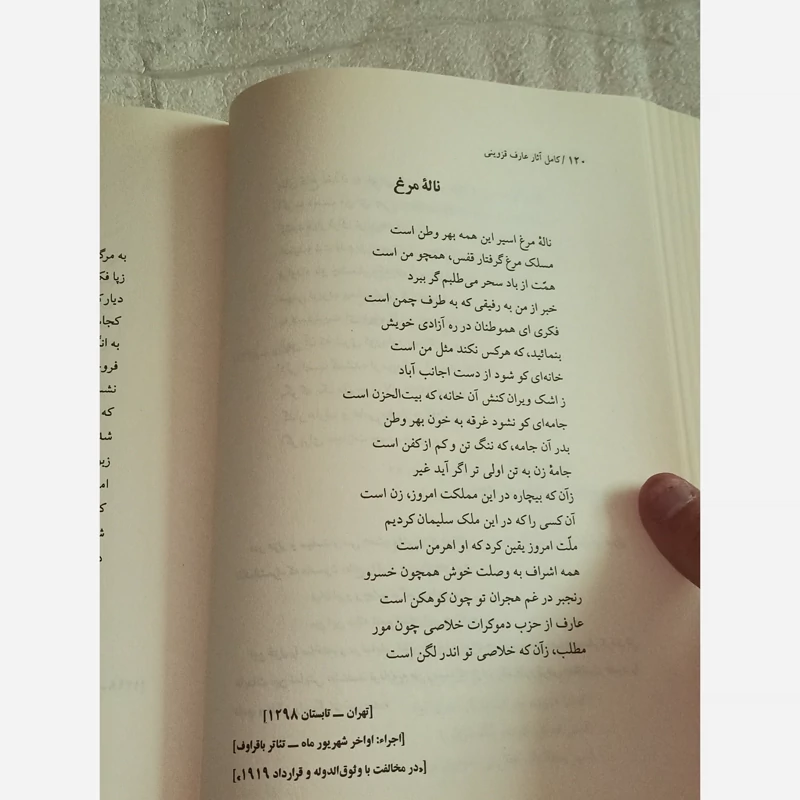 ۱۲۰ / کامل آثار عارف قزوینی
نالهٔ مرغ
نالهٔ مرغ اسیر این همه بهر وطن است
مسلک مرغ گرفتار قفس، همچو من است
همّت از باد سحر می‌طلبم گر ببرد
خبر از من به رفیقی که به طرف چمن است
فکری ای هموطنان در ره آزادی خویش
بنمائید، که هرکس نکند مثل من است
خانه‌ای کو شود از دست اجانب آباد
ز اشک ویران کنش آن خانه، که بیت‌الحزن است
جامه‌ای کو نشود غرقه به خون بهر وطن
بدر آن جامه، که ننگ تن و کم از کفن است
جامهٔ زن به تن اولی تر اگر آید غیر
زآن که بیچاره در این مملکت امروز، زن است
آن کسی را که در این ملک سلیمان کردیم
ملّت امروز یقین کرد که او اهرمن است
همه اشراف به وصلت خوش همچون خسرو
رنجبر در غم هجران تو چون کوهکن است
عارف از حزب دموکرات خلاصی چون مور
مطلب، زآن که خلاصی تو اندر لگن است
[تهران ــ تابستان ۱۲۹۸]
[اجراء: اواخر شهریور ماه ــ تئاتر باقراوف]
[«در مخالفت با وثوق‌الدوله و قرارداد ۱۹۱۹»]
به مرگ
زپا فک
دیار ک
کجا
به ان
فرو
نش
که
شد
زیو
ام